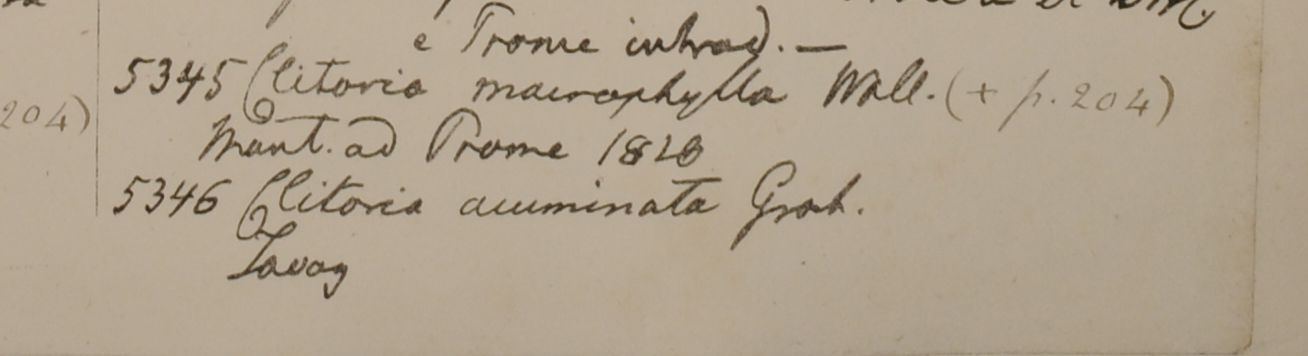 e Prome introd. —
5345 Clitoria macrophylla Wall. (+ p. 204)
204)
Mont. ad Prome 1826
5346 Clitoria acuminata Grah.
Tavoy